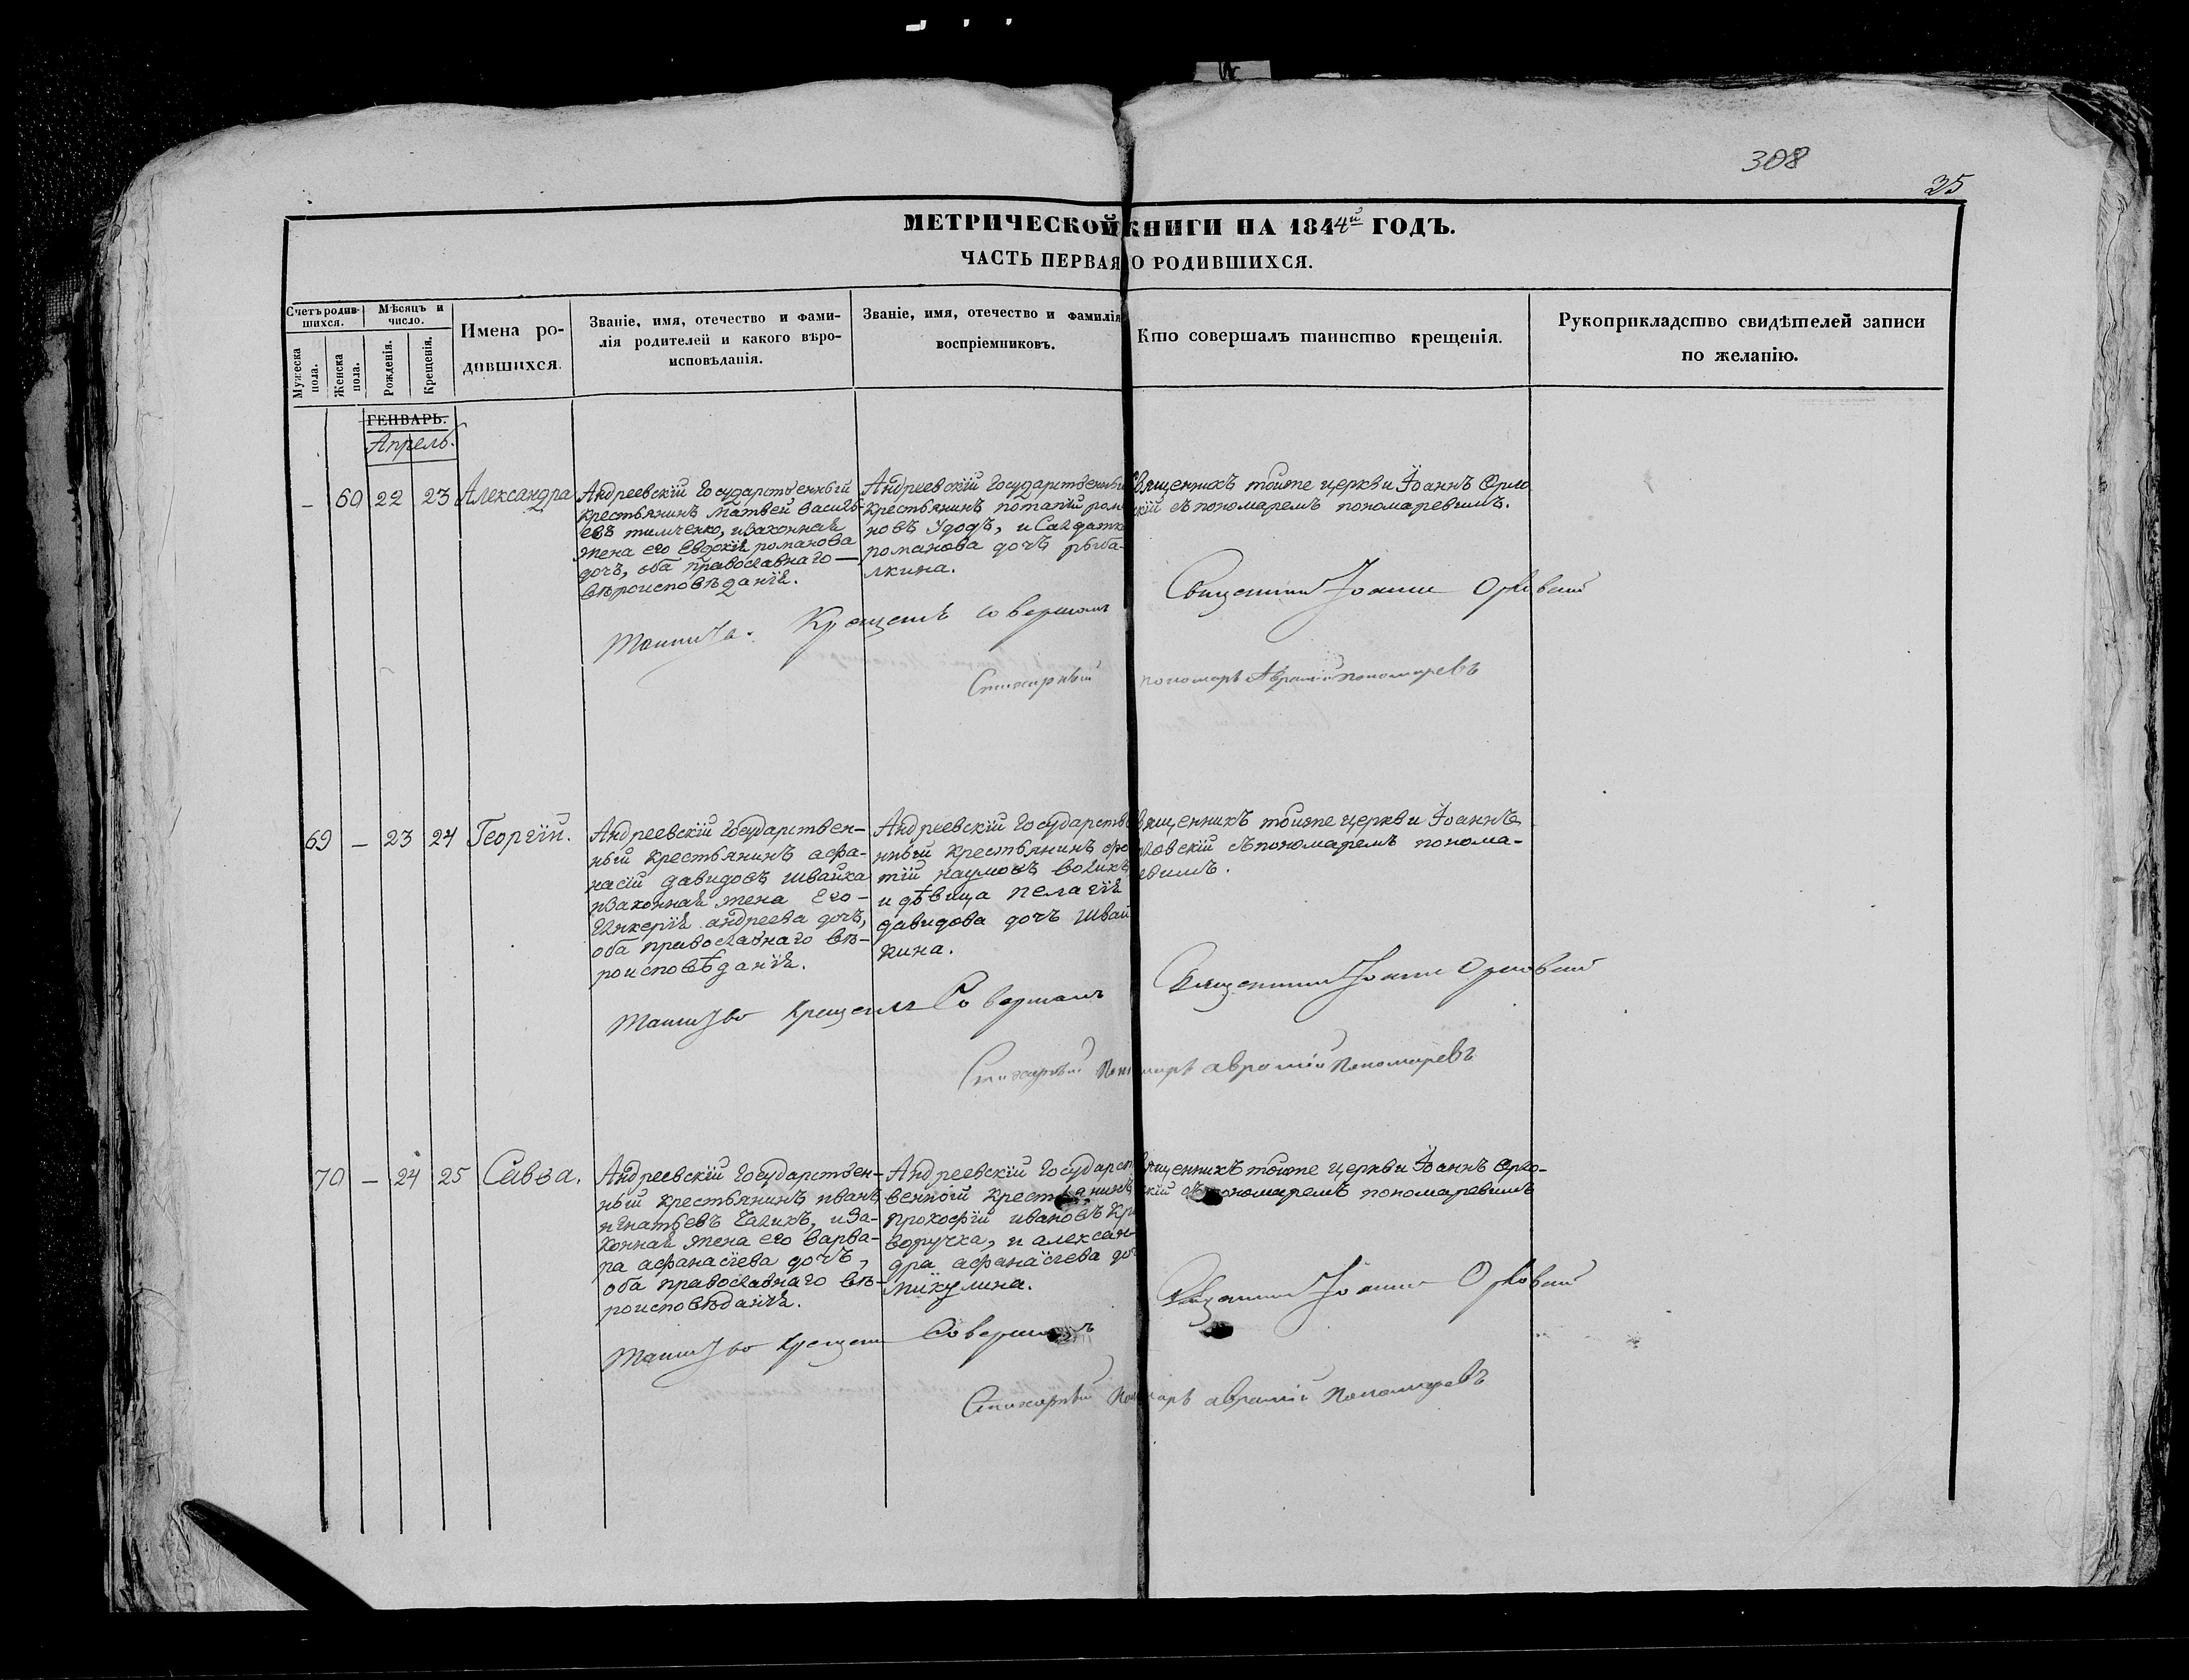 308
35
МЕТРИЧЕСКОЙ КНИГИ НА 1844й ГОДЪ.
ЧАСТЬ ПЕРВАЯ О РОДИВШИХСЯ.
Счетъ родив-
шихся.
Мужеска
пола.
Женска
пола.
Мѣсяцъ и
число.
Рожденія.
Крещенія.
Имена ро-
дившихся.
Званіе, имя, отечество и фами-
лія родителей и какого вѣро-
исповѣданія.
Званіе, имя, отечество и фамилія
воспріемниковъ.
Кто совершалъ таинство крещенія.
Рукоприкладство свидѣтелей записи
по желанію.
ГЕНВАРЬ.
Апрель.
– 60 22 23 Александра
Андреевскій государственный
крестьянинъ Матвей василь-
евъ тимченко, изаконная
жена его Евдокія романова
дочъ, оба православнаго —
вѣроисповѣданія.
Андреевскій государственный
крестьянинъ потапій рома
новъ Удодъ, и Салдатка
романова дочъ рыба-
лкина.
Священникъ тойже церкви Іоаннъ Орло
скій съ пономаремъ пономаревимъ.
Таинства Крещенія совершалъ Священникъ Іоаннъ Орловскій
Стихарный пономарь Аврамій Пономаревъ
69 – 23 24 Георгій.
Андреевскій государствен-
ный крестьянинъ афа-
насій давидовъ швайка
изаконная жена Его –
Гликерія андреева дочъ,
оба православнаго вѣ-
роисповѣданія.
Андреевскій государств
нный крестьянинъ фо
тій наумовъ воликъ
и дѣвица пелагія
давидова дочъ Швай
кина.
Священникъ тойже церкви Іоаннъ
Орловскій съ пономаремъ понома-
ревимъ.
Таинство Крещенія Совершалъ Священникъ Іоаннъ Орловскій
Стихарный Пономарь аврамій Пономаревъ
70 – 24 25 Савва.
Андреевскій государствен-
ный крестьянинъ иванъ
игнатьевъ Галикъ, иза-
конная жена его варва-
ра афанасіева дочъ,
оба православнаго вѣ-
роисповѣданія.
Андреевскій государст
венный крестьянинъ
прокофій ивановъ Кри
воручка, и алексан-
дра афанасіева доч
пикулина.
Священникъ тойже церкви Іоаннъ Орло-
скій съ пономаремъ пономаревимъ
Таинство Крещенія Совершалъ Священникъ Іоаннъ Орловскій
Стихарный Пономарь аврамій Пономаревъ